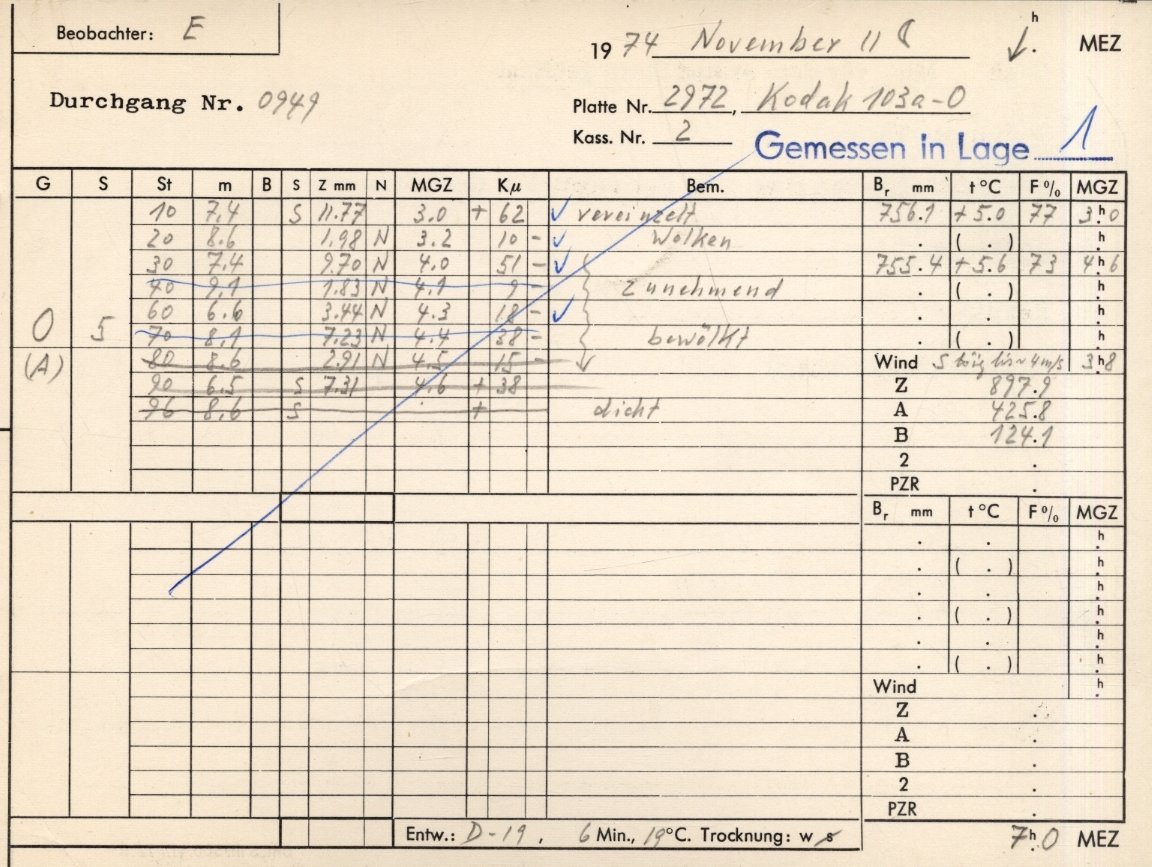 Beobachter: E
1974 November 11 h. MEZ
Durchgang Nr. 0949
Platte Nr. 2972, Kodak 103a-O
Kass. Nr. 2
Gemessen in Lage 1
G S St m B S Z mm N MGZ Kμ Bem. Br mm t °C F % MGZ
10 7.4 S 11.77 3.0 + 62 ✓ vereinzelt 756.1 +5.0 77 3h.0
20 8.6 1.98 N 3.2 10 - ✓ Wolken . ( . ) h.
30 7.4 9.70 N 4.0 51 - ✓ 755.4 +5.6 73 4h.6
40 9.1 1.83 N 4.1 9 - zunehmend . ( . ) h.
0 5 60 6.6 3.44 N 4.3 18 - ✓ . . h.
70 8.1 7.23 N 4.4 38 - bewölkt . ( . ) h.
(A) 80 8.6 2.91 N 4.5 15 - Wind S böig bis ~ 4 m/s 3h.8
90 6.5 S 7.31 4.6 + 38 Z 897.9
96 8.6 S . + dicht A 425.8
B 124.1
2 .
PZR .
Br mm t °C F % MGZ
. . h.
. ( . ) h.
. . h.
. ( . ) h.
. . h.
. ( . ) h.
Wind h.
Z .
A .
B .
2 .
PZR .
Entw.: D-19, 6 Min., 19°C. Trocknung: w s 7h.0 MEZ